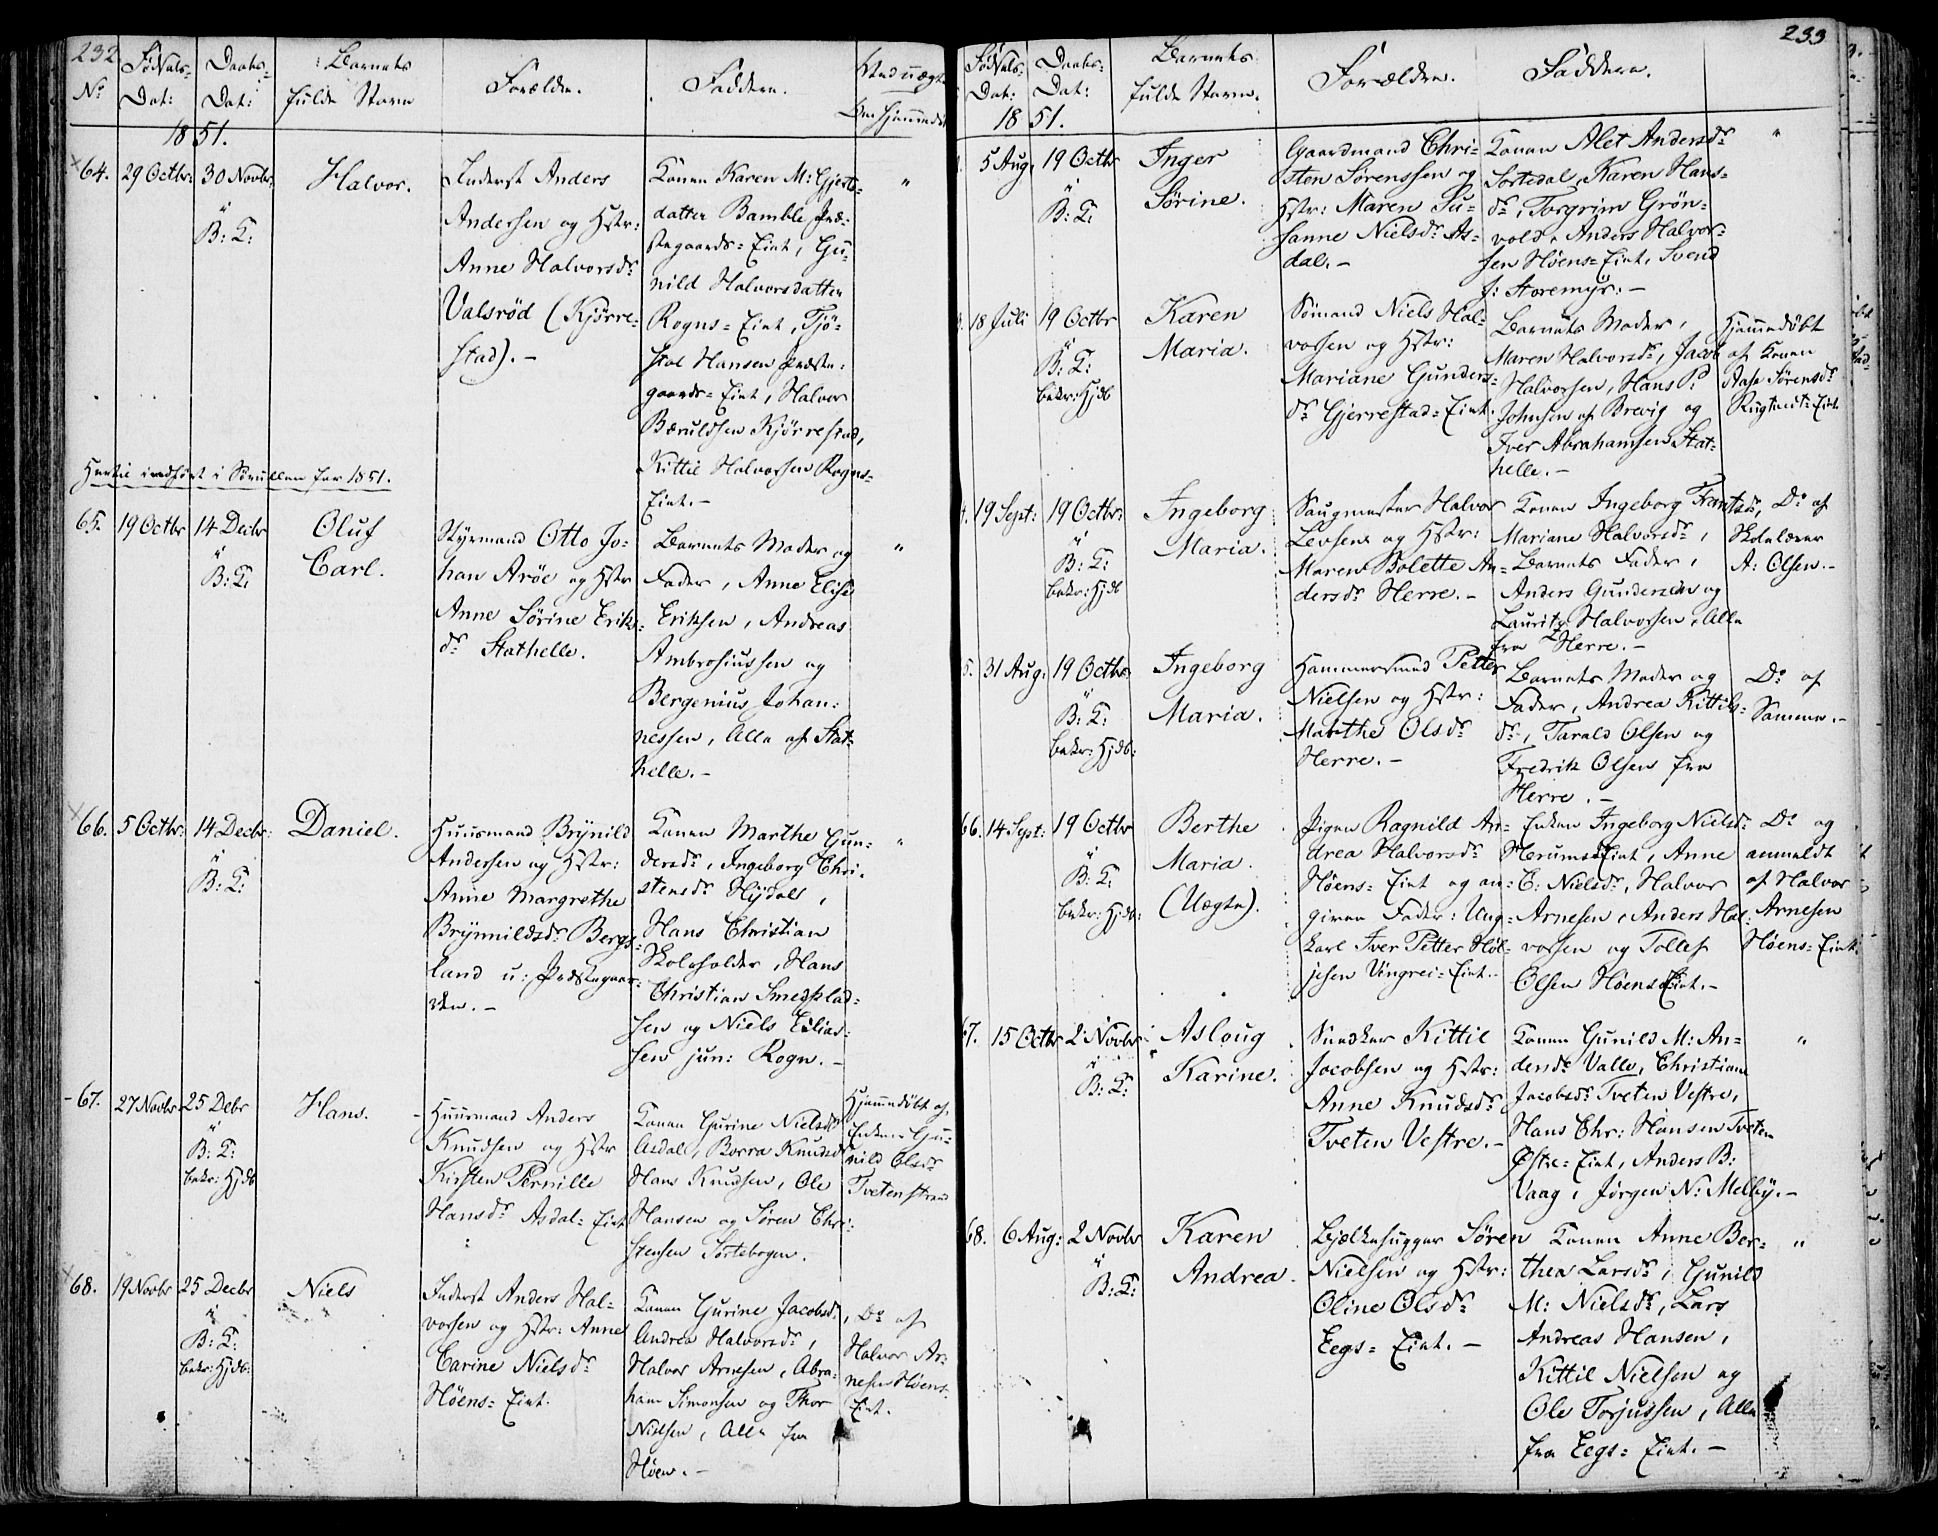 232
No
Födsels-
Dat:
Daabs-
Dat:
Barnets
fulde Navn
Forældre.
Faddere.
1851.
64. 29 Octbr: 30 Novbr:
B: K:
Halvor.
Inderst Anders
Andersen og Hstr:
Anne Halvorsdr
Valsrød (Kjørre-
stad). -
Konen Karen M: Gjert-
datter Bamble Præ-
stegaards-Eiet, Gu-
nild Halvorsdatter
Rogns-Eiet, Tjö-
stol Hansen Præste-
gaards-Eiet, Halvor
Bæruldsen Kjörrestad,
Kittil Halvorsen Rogns-
Eiet. -
"
Hertil indført i Sørullen for 1851.
65. 19 Octbr 14 Decbr
B: K:
Oluf
Carl.
Styrmand Otto Jo-
han Aröe og Hstr
Anne Sørine Eriks-
dr Stathelle.
Barnets Moder og
Fader, Anne Elise
Eriksen, Andreas
Ambrosiussen og
Bergenius Johan-
nessen, Alle af Stat-
helle. -
"
66. 5 Octbr: 14 Decbr:
B: K:
Daniel.
Huusmand Brynild
Andersen og Hstr:
Anne Margrethe
Brynnildsdr Bergs-
land u: Præstegaar-
den. -
Konen Marthe Gun-
dersdr, Ingeborg Chri-
stensdr Hÿdals,
Hans Christian
Skoleholder, Hans
Christian Smedsplad-
sen og Niels Elias-
sen jun: Rogn. -
"
67. 27 Novbr 25 Debr
B: K:
bekr: Hjdb
Hans.
Huusmand Anders
Knudsen og Hstr
Kirsten Pernille
Hansdr Asdal-Eiet
Konen Gurine Nielsdr
Asdal, Borra Knudsdr
Hans Knudsen, Ole
Hansen og Søren Chri-
stensen Sortebogen.
Hjemmedöbt af
Enken Gu-
nild Olsdr
Tvetenstrand
68. 19 Novbr 25 Decbr
B: K:
bekr: Hjdb:
Niels
Inderst Anders Hal-
vorsen og Hstr: Anne
Carine Nielsdr
Höens-Eiet.
Konen Gurine Jacobsdr,
Andrea Halvorsdr,
Halvor Arnesen, Abra-
ham Simonsen og Thor
Nielsen, Alle fra
Höen. -
Do af
Halvor Ar-
nesen Höens-
Eiet.
233
Födsels-
Dat:
Daabs-
Dat:
Barnets
fulde Navn.
Forældre.
Faddere.
1851.
5 Aug: 19 Octbr
B: K:
Inger
Sørine.
Gaardmand Chri-
sten Sørenssen og
Hstr: Maren Su-
sanne Nielsdr As-
dal. -
Konen Alet Andersdr
Sortedal, Karen Hans-
dr, Torgrim Grön-
vold, Anders Halvor-
sen Höens-Eiet, Svend
J: Storemyr: -
"
18 Juli 19 Octbr
B: K:
bekr: Hjdb
Karen
Maria.
Sömand Niels Hal-
vorsen og Hstr:
Mariane Gunders-
dr Gjerrestad-Eiet.
Barnets Moder,
Maren Halvorsdr, Jacob
Halvorsen, Hans P:
Johnsen af Brevig og
Iver Abrahamsen Stat-
helle. -
Hjemmedöbt
af Konen
Aase Sørensdr
Rugtvet-Eiet
19 Sept: 19 Octbr:
B: K:
bekr: Hjdb
Ingeborg
Maria.
Saugmester Halvor
Levsens og Hstr:
Maren Bolette An-
dersdr Herre. -
Konen Ingeborg Frantzdr,
Mariane Halvorsdr,
Barnets Fader,
Anders Gundersens og
Lauritz Halvorsen, Alle
fra Herre. -
Do af
Skolelærer
A: Olsen. -
31 Aug: 19 Octbr:
B: K:
bekr: Hjdb:
Ingeborg
Maria.
Hammersmed Petter
Nielsen og Hstr:
Marthe Olsdr
Herre. -
Barnets Moder og
Fader, Andrea Kittils-
dr, Tarald Olsen og
Fredrik Olsen fra
Herre. -
Do af
Samme. -
66. 14 Sept: 19 Octbr
B: K:
bekr: Hjdb:
Berthe
Maria.
(Uægte).
Pigen Ragnild An-
drea Halvorsdr
Höens-Eiet og an-
given Fader: Ung-
karl Iver Petter Höl-
jesen Vingrei-Eiet. -
Enken Ingeborg Nielsdr
Herums Eiet, Anne
E: Nielsdr, Halvor
Arnesen, Anders Hal-
vorsen og Tollef
Olsen Höens Eiet. -
Do og
anmeldt
af Halvor
Arnesen
Höens-Eiet.
67. 15 Octbr 2 Novbr
B: K:
Asloug
Karine.
Snedker Kittil
Jacobsen og Hstr:
Anne Knudsdr
Tveten Vestre. -
Konen Gunild M: An-
dersdr Valle, Christiane
Jacobsdr Tveten Vestre,
Hans Chr: Hansen Tveten
Østre-Eiet, Anders B:
Vaag, Jörgen N: Melby. -
"
68. 6 Aug: 2 Novbr
B: K:
Karen
Andrea.
Bjelkehugger Søren
Nielsen og Hstr:
Oline Olsdr
Eegs-Eiet. -
Konen Anne Ber-
thea Larsdr, Gunild
M: Nielsdr, Lars
Andreas Hansen,
Kittil Nielsen og
Ole Torjussen, Alle
fra Eegs-Eiet. -
"